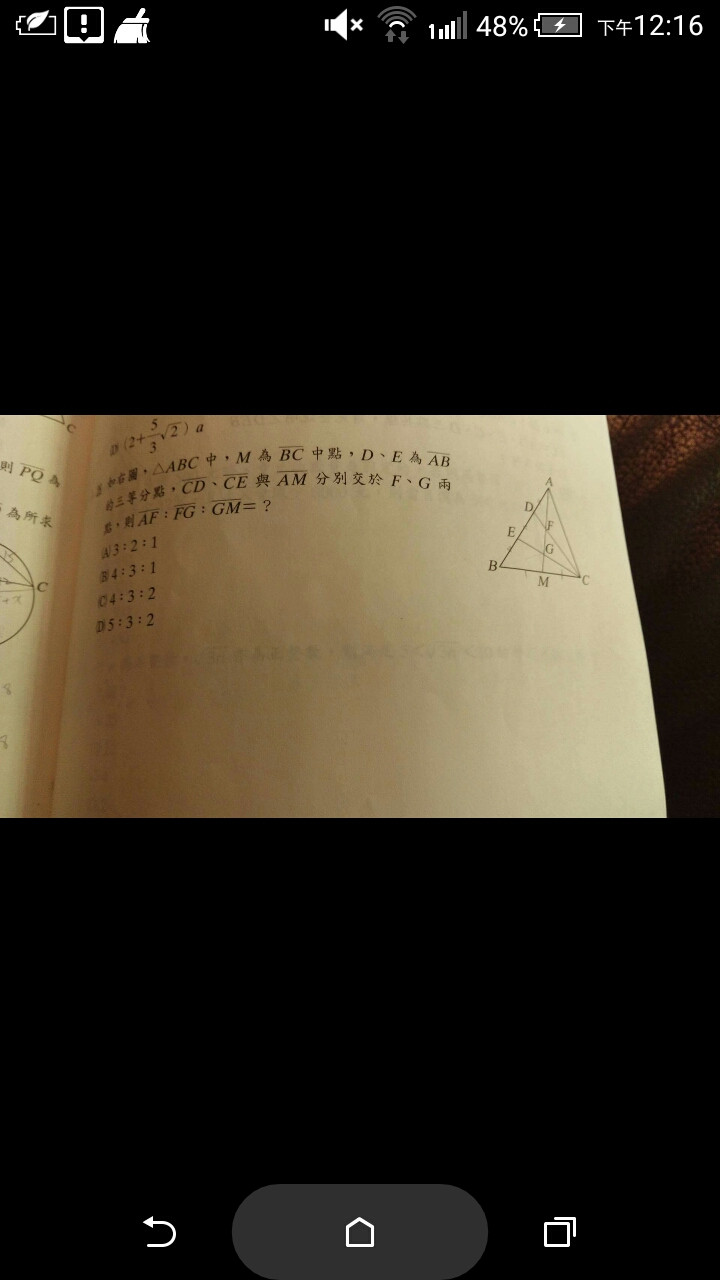 48% 下午12:16
C
(D) (2+5/3√2) a
則 PQ 為
如右圖，△ABC 中，M 為 BC 中點，D、E 為 AB
的三等分點，CD、CE 與 AM 分別交於 F、G 兩
為所求
點，則 AF：FG：GM=？
(A) 3：2：1
(B) 4：3：1
(C) 4：3：2
(D) 5：3：2
A
D
F
E
G
B
M
C
C
8
8